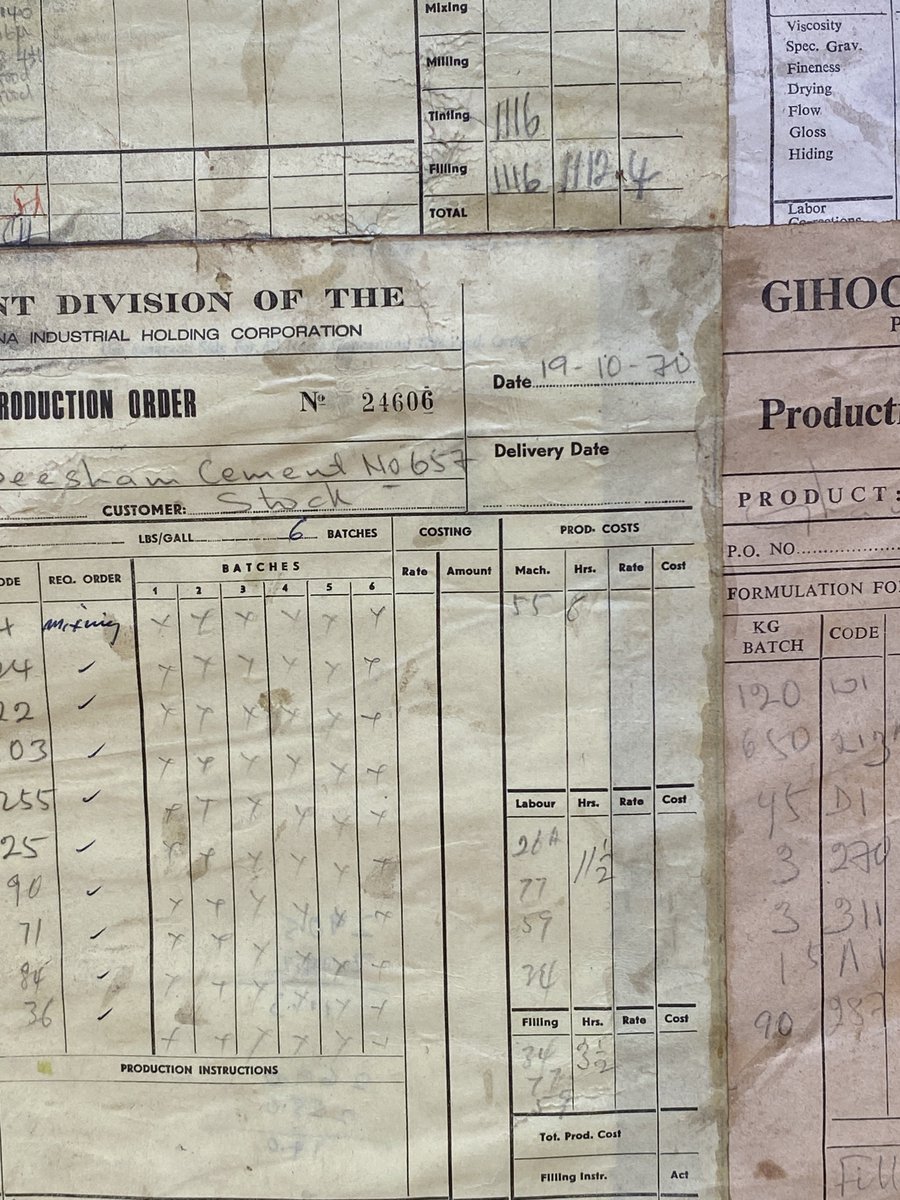 Mixing
Milling
Tinting 1116
Filling 1116 1112.4
TOTAL
Viscosity
Spec. Grav.
Fineness
Drying
Flow
Gloss
Hiding
Labor
NT DIVISION OF THE
NA INDUSTRIAL HOLDING CORPORATION
RODUCTION ORDER Nº 24606
Date 19-10-70
Delivery Date
Cement No 657
CUSTOMER: Stock
LBS/GALL 6 BATCHES
COSTING
PROD. COSTS
ODE REQ. ORDER BATCHES Rate Amount Mach. Hrs. Rate Cost
1 2 3 4 5 6
4 mixing x x x x x x 55 6
24 ✓ x x x x x x
22 ✓ x x x x x x
03 ✓ x x x x x x
255 ✓ x x x x x x
25 ✓ x x x x x x
90 ✓ x x x x x x
71 ✓ x x x x x x
84 ✓ x x x x x x
36 ✓ x x x x x x
Labour Hrs. Rate Cost
26A 11 1/2
77
59
34
Filling Hrs. Rate Cost
34 3 1/2
77
59
PRODUCTION INSTRUCTIONS
Tot. Prod. Cost
Filling Instr. Act
GIHOC
P
Producti
PRODUCT:
P.O. NO
FORMULATION FO
KG BATCH CODE
120 101
650 213
45 D1
3 270
3 311
90 287
Fill